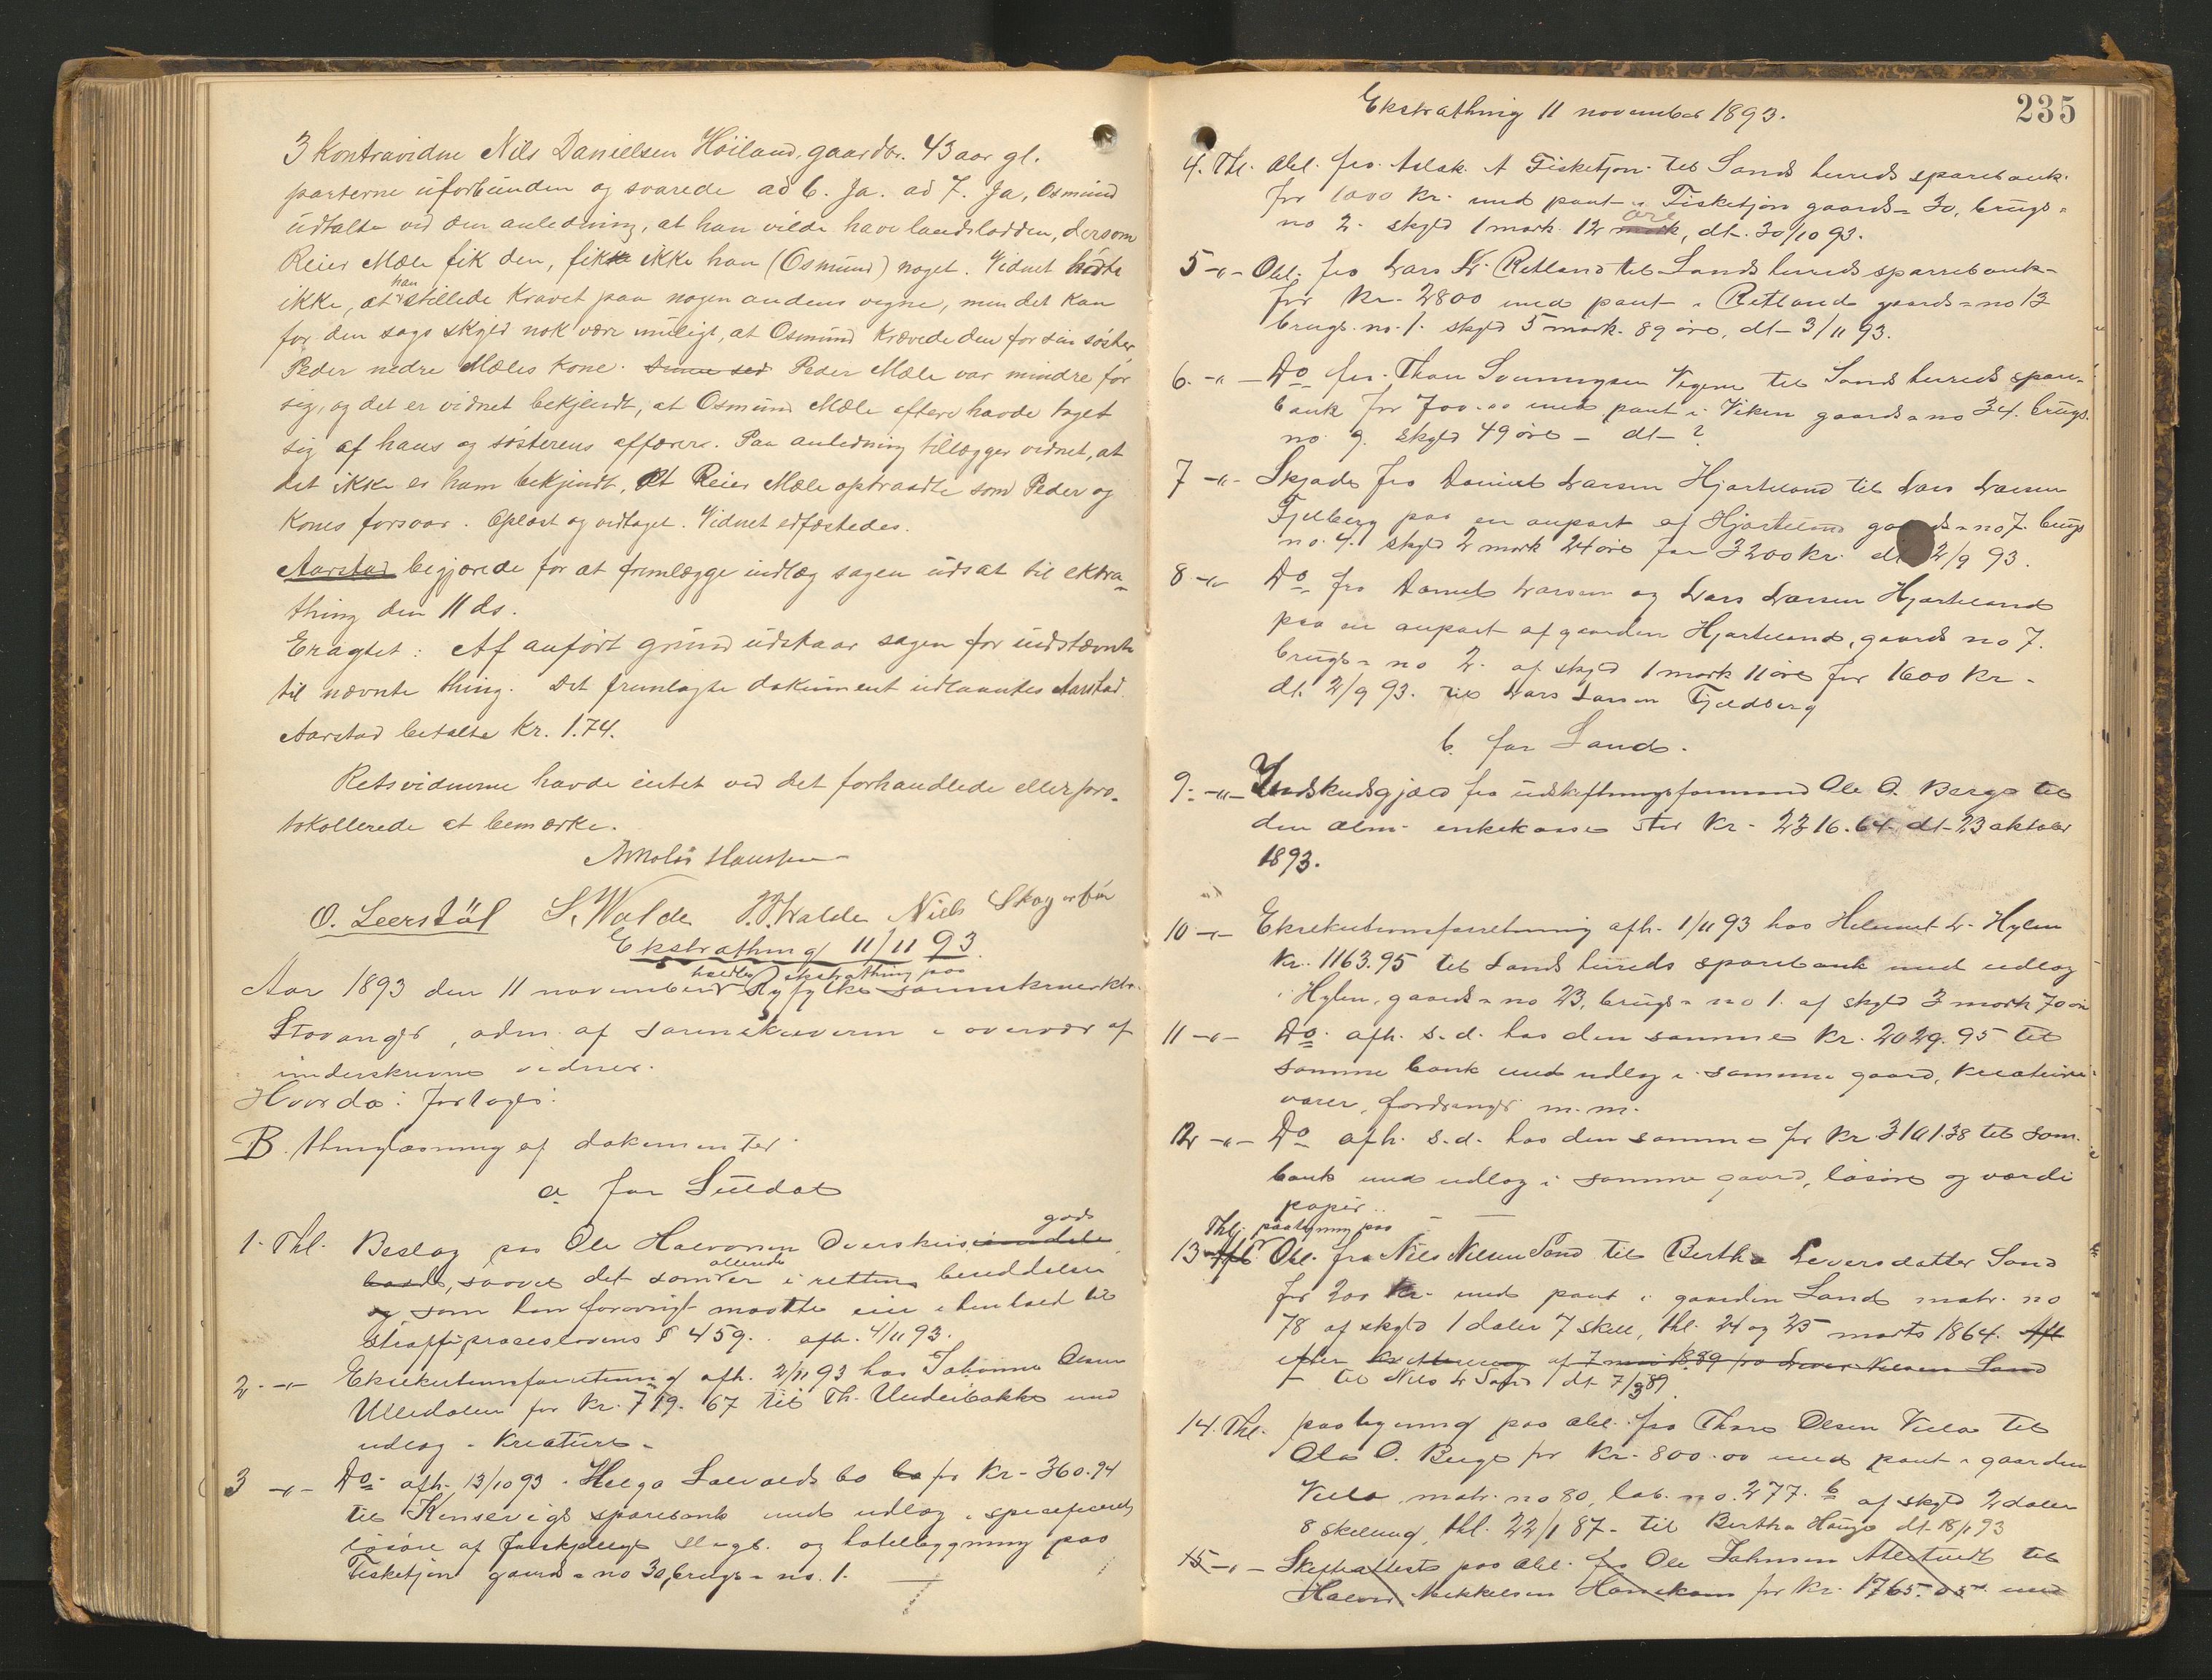 3 Kontravidne Nils Danielsen Höiland, gaardbr. 43 aar gl.
parterne uforbunden og svarede ad 6. Ja. ad 7. Ja, Osmund
udtalte ved den anledning, at han vilde have landslodden, dersom
Reier Mæle fik den, fik ikke han (Osmund) noget. Vidnet hørte
ikke, at han stillede kravet paa nogen andens vegne, men det kan
for den sags skyld nok være muligt, at Osmund krævede den for sin søster
Peder nedre Mæles kone. Peder Mæle var mindre for
sig, og det er vidnet bekjendt, at Osmund Mæle oftere havde taget
sig af hans og søsterens affærer. Paa anledning tillægger vidnet, at
det ikke er ham bekjendt, at Reier Mæle optraadte som Peder og
Kones forsvar. Oplæst og vedtaget. Vidnet edfæstedes.
Aarstad begjærede for at fremlægge indlæg sagen udsat til extra-
thing den 11 ds.
Eragtet: Af anført grund udstaar sagen for indstævnte
til nævnte thing. Det fremlagte dokument udlaantes Aarstad.
Aarstad betalte kr. 1.74.
Retsvidnerne havde intet ved det forhandlede eller pro-
tokollerede at bemærke.
O. Leerstöl S. Walde V. Walde Niels
Ekstrathing 11/11 93.
holdtes ekstrathing paa
Aar 1893 den 11 november Ryfylke sorenskriverktr.
Stavanger, adm. af sorenskriveren i overvær af
underskrevne vidner.
Hvorda: foretoges:
B. thinglæsning af dokumenter
a for Suldal
gods
1. Thl. Beslag paa Ole Halvorsen
saavel det som allerede er i rettens besiddelse
og som han forøvrigt maatte eie i henhold til
straffeproceslovens § 459. afh. 4/11 93.
2. -"- Eksekutionsforretning afh. 2/11 93 hos Johannes Olsen
Ulledalen for kr. 719.67 til Th. Underbakke med
udlæg i kreature.
3 -"- Do afh. 13/10 93 i Helge Lalvaeds bo for kr. 360.94
til Kinservigs sparebank med udlæg i specificeret
løsøre af forskjellige slags. og hotelbygning paa
Fisketjøn gaards-no 30, brugs-no. 1.
235
Ekstrathing 11 november 1893.
4. Thl. Obl. fra Aslak A Fisketjøn til Sands herreds sparebank
for 1000 kr. med pant i Fisketjøn gaards-30, brugs-
no 2. skyld 1 mark 12 øre, dt. 30/10 93.
5 -"- Obl. fra Lars L. Retland til Sands herreds sparrebank
for kr. 2800 med pant i Retland gaards-no 13
brugs-no. 1. skyld 5 mark 89 øre, dt- 3/11 93.
6. -"- Do fra Thore Vigene til Sands herreds spare-
bank for 700.00 med pant i Viken gaards-no 34. brugs-
no 9. skyld 49 øre - dt- ?
7 -"- Skjøde fra Daniel Larsen Hjorteland til Lars Larsen
Fjelberg paa en anpart af Hjorteland gaards-no 7. brugs
no. 4. skyld 2 mark 24 øre for 3200 kr. dt 2/9 93.
8 -"- Do fra Daniel Larsen og Lars Larsen Hjorteland
paa en anpart af gaarden Hjorteland, gaards no 7.
brugs-no 2. af skyld 1 mark 11 øre for 1600 kr.
dt. 2/9 93. til Lars Larsen Fjeldberg
b. for Sand.
9. -"- Indskudsgjæld fra udskiftningsformand Ole O. Berge til
den alm. enkekasse stor kr. 2316.64 dt- 23 oktober
1893.
10 -"- Eksekutionsforretning afh. 1/11 93 hos Helmet L. Hylen
kr. 1163.95 til Sands herreds sparebank med udlæg
i Hylen, gaards-no 23, brugs-no 1. af skyld 3 mark 70 øre
11 -"- Do. afh. s.d. hos den samme kr. 2029.95 til
samme bank med udlæg i samme gaard, kreature,
varer, fordringer m.m.
12 -"- Do afh. s.d. hos den samme for kr 3101.38 til sam.
bank med udlæg i samme gaard, løsøre og værdi
papir.
Thl. paategning paa
13 Obl. fra Nils Nilsen Sand til Bertha Seversdatter Sand
for 200 kr. med pant i gaarden Sand matr. no
78 af skyld 1 daler 7 skill, thl. 24 og 25 marts 1864.
efter kvittering af 7 mai 1889 fra Nilsen Sand
til Nils L Sand dt 7/3 89.
14. Thl. paategning paa obl. fra Thore Olsen Vela til
Ola O. Berge for kr. 800.00 med pant i gaarden
Vela, matr. no 80, løb. no. 277. b af skyld 2 daler
8 skilling, thl. 22/1 87. til Bertha Hauge dt 18/1 93
15 -"- Skifteattest paa obl. fra Ole Johnsen til
Halvor Mikkelsen for kr. 1765.05 med